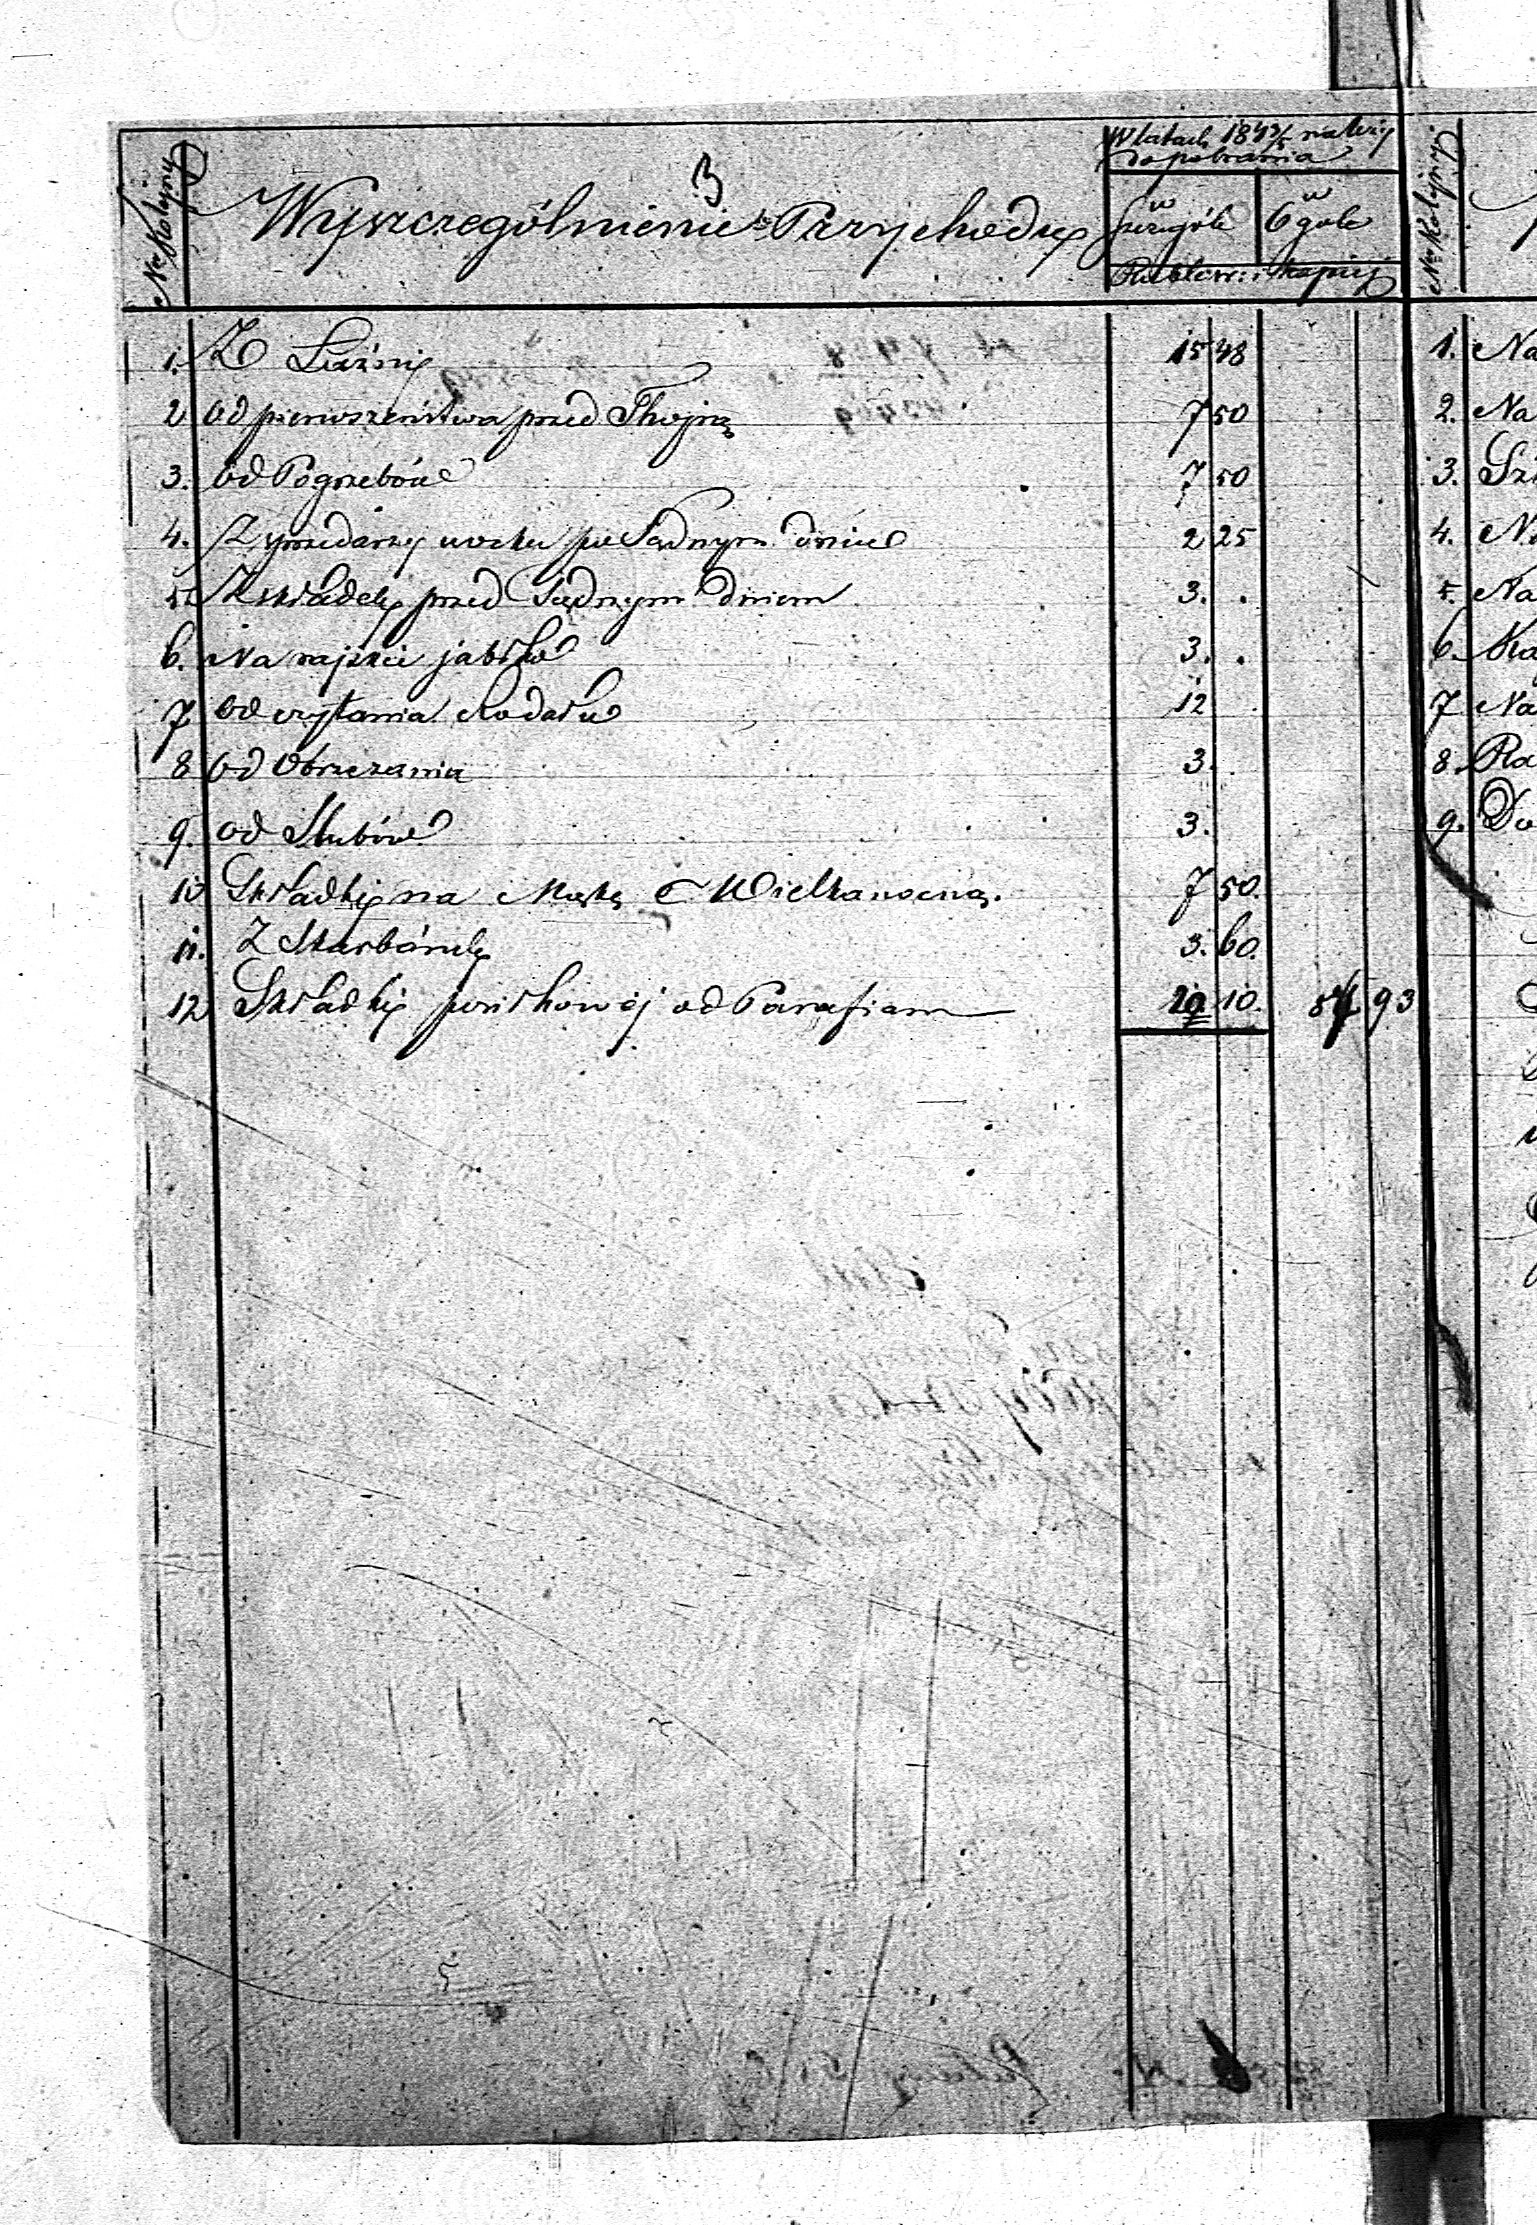 3
Nr Kolejny
Wyszczególnienie Przychodu
W latach 1843/5 należy
do pobrania
w szczególe
w Ogóle
Rublów i kopiej
Nr Kolejny
1. Z Łaźni 15 48
2 od pierwszeństwa przed Thorą 7 50
3. od Pogrzebów 7 50
4. Z sprzedaży wosku po Sądnym dniu 2 25
5. Z składek przed Sądnym dniem 3. .
6. Na rajskie jabłko 3. .
7 od czytania Rodału 12 .
8 od Obrzezania 3. .
9. od Ślubów 3.
10 Składki na Mąkę Wielkanocną. 7 50.
11. Z Skarbónki 3. 60.
12 Składki od Parafian 10. 57 93
1. Na
2. Na
3.
4.
5. Na
6.
7 Na
8.
9. Do